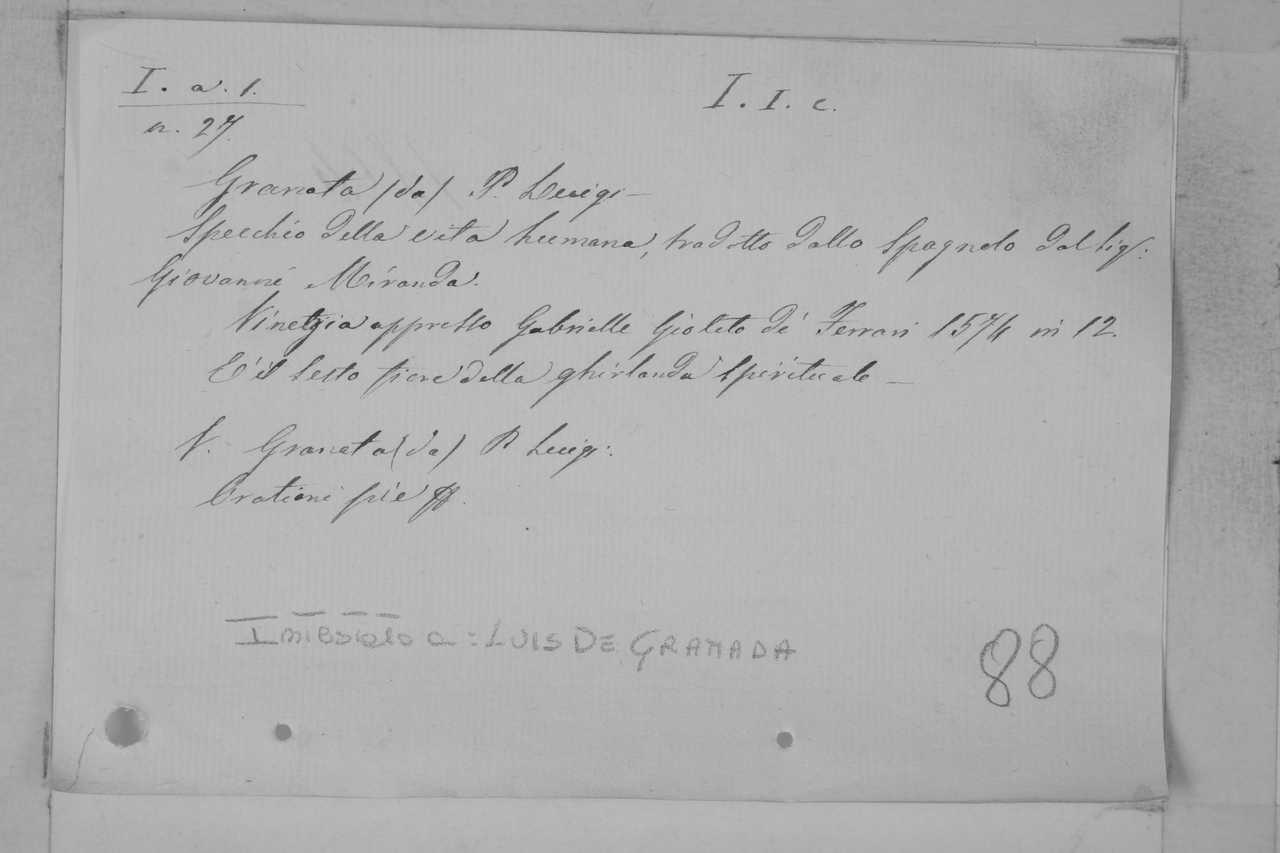 I. a. 1.
I. I. c.
n. 27.
Granata (da) P. Luigi –
Specchio della vita humana, tradotto dallo Spagnolo dal Sig.:
Giovanni Miranda.
Vinetgia appresso Gabrielle Gioleto de' Ferrari 1574 in 12.
E' il sesto fiore della ghirlanda spirituale –
V. Granata (da) P. Luigi:
Orationi pie
a: LUIS DE GRANADA
88